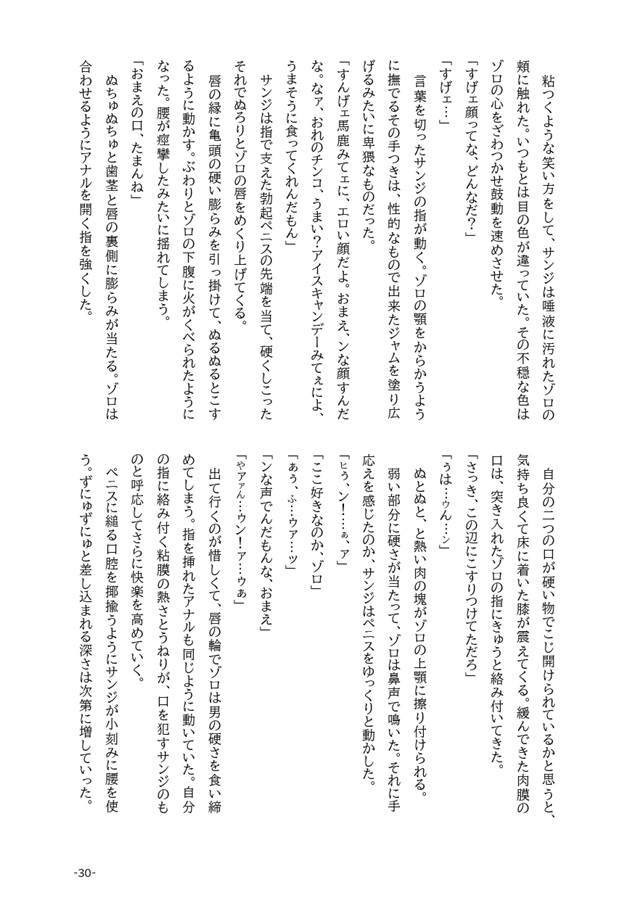 粘つくような笑い方をして、サンジは唾液に汚れたゾロの
頬に触れた。いつもとは目の色が違っていた。その不穏な色は
ゾロの心をざわつかせ鼓動を速めさせた。
「すげェ顔ってな、どんなだ？」
「すげェ…」
言葉を切ったサンジの指が動く。ゾロの顎をからかうよう
に撫でるその手つきは、性的なもので出来たジャムを塗り広
げるみたいに卑猥なものだった。
「すんげェ馬鹿みてェに、エロい顔だよ。おまえ、ンな顔すんだ
な。なァ、おれのチンコ、うまい？アイスキャンデーみてぇによ、
うまそうに食ってくれんだもん」
サンジは指で支えた勃起ペニスの先端を当て、硬くしこった
それでぬろりとゾロの唇をめくり上げてくる。
唇の縁に亀頭の硬い膨らみを引っ掛けて、ぬるぬるとこす
るように動かす。ぶわりとゾロの下腹に火がくべられたように
なった。腰が痙攣したみたいに揺れてしまう。
「おまえの口、たまんね」
ぬちゅぬちゅと歯茎と唇の裏側に膨らみが当たる。ゾロは
合わせるようにアナルを開く指を強くした。
自分の二つの口が硬い物でこじ開けられているかと思うと、
気持ち良くて床に着いた膝が震えてくる。緩んできた肉膜の
口は、突き入れたゾロの指にきゅうと絡み付いてきた。
「さっき、この辺にこすりつけてただろ」
「うは…ゥん…ッ」
ぬとぬと、と熱い肉の塊がゾロの上顎に擦り付けられる。
弱い部分に硬さが当たって、ゾロは鼻声で鳴いた。それに手
応えを感じたのか、サンジはペニスをゆっくりと動かした。
「ヒぅ、ン！…ぁ、ア」
「ここ好きなのか、ゾロ」
「あぅ、ふ…ウア…ッ」
「ンな声でんだもんな、おまえ」
「やアァん…ウン！ア…ゥぁ」
出て行くのが惜しくて、唇の輪でゾロは男の硬さを食い締
めてしまう。指を挿れたアナルも同じように動いていた。自分
の指に絡み付く粘膜の熱さとうねりが、口を犯すサンジのも
のと呼応してさらに快楽を高めていく。
ペニスに縋る口腔を揶揄うようにサンジが小刻みに腰を使
う。ずにゅずにゅと差し込まれる深さは次第に増していった。
-30-